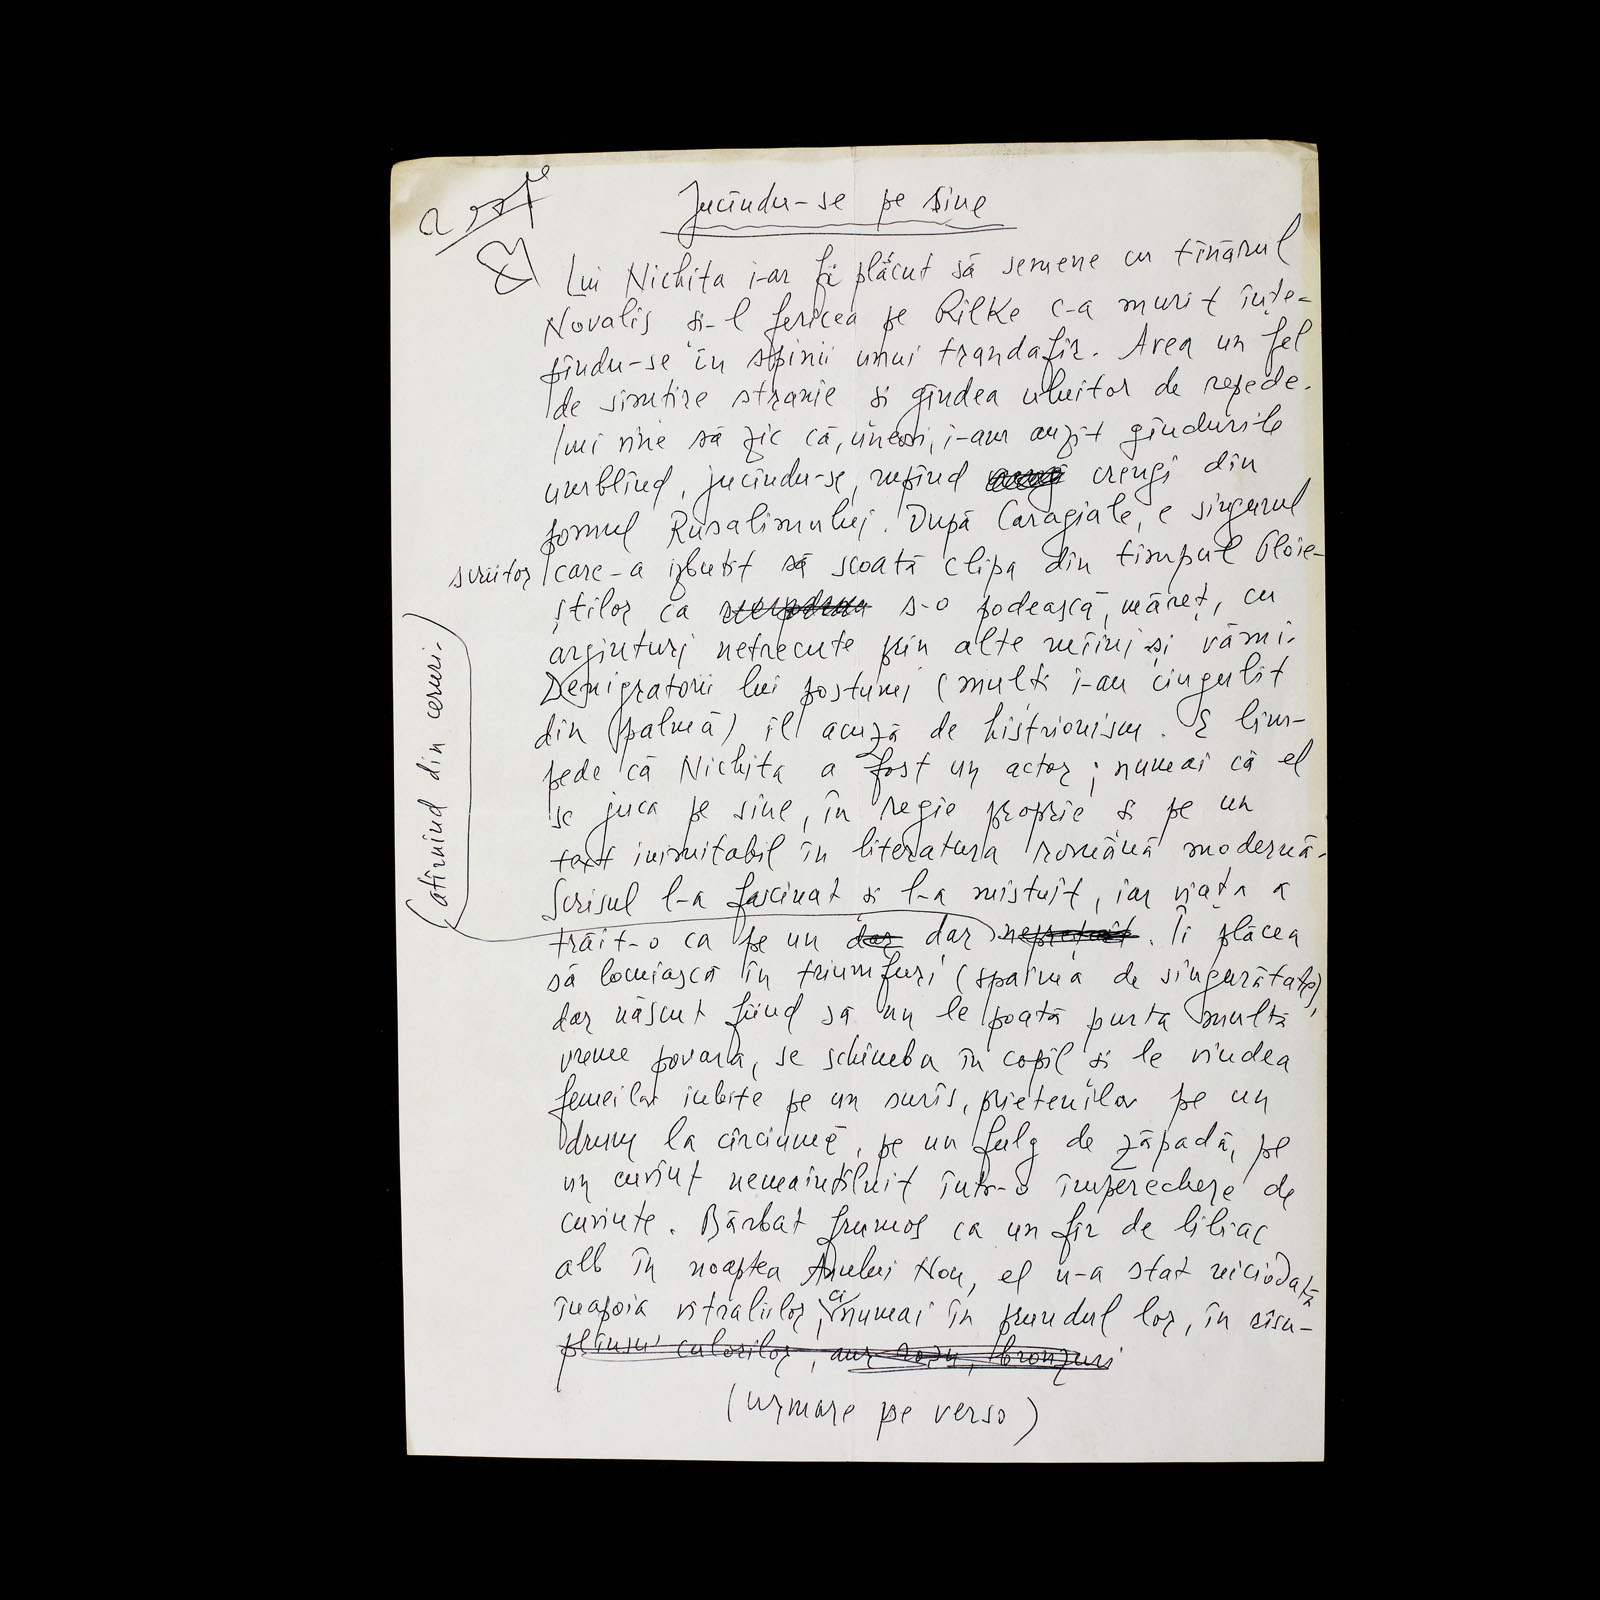 Jucîndu-se pe sine
Lui Nichita i-ar fi plăcut să semene cu tînărul
Novalis și-l fericea pe Rilke c-a murit înțe-
pîndu-se în spinii unui trandafir. Avea un fel
de simțire stranie și gîndea uluitor de repede.
Îmi vine să zic că, uneori, i-am auzit gîndurile
umblînd, jucîndu-se, rupînd crengi din
pomul Rusalimului. După Caragiale, e singurul
scriitor care-a izbutit să scoată clipa din timpul Ploie-
știlor ca s-o podească, măreț, cu
arginturi netrecute prin alte mîini și vămi.
Denigratorii lui postumi (mulți i-au ciugulit
din palmă) îl acuză de histrionism. E lim-
pede că Nichita a fost un actor; numai că el
se juca pe sine, în regie proprie și pe un
text inimitabil în literatura română modernă.
Scrisul l-a fascinat și l-a mistuit, iar viața a
trăit-o ca pe un dar dar neprețuit. Îi plăcea
(atîrnînd din ceruri.)
să locuiască în triumfuri (spaima de singurătate),
dar născut fiind să nu le poată purta multă
vreme povara, se schimba în copil și le vindea
femeilor iubite pe un surîs, prietenilor pe un
drum la cîrciumă, pe un fulg de zăpadă, pe
un cuvînt nemaiîntîlnit într-o împerechere de
cuvinte. Bărbat frumos ca un fir de liliac
alb în noaptea Anului Nou, el n-a stat niciodată
înapoia vitraliilor, ci numai în prundul lor, în rîsu-
plînsu' culorilor, aur roșu, bronzuri
(urmare pe verso)